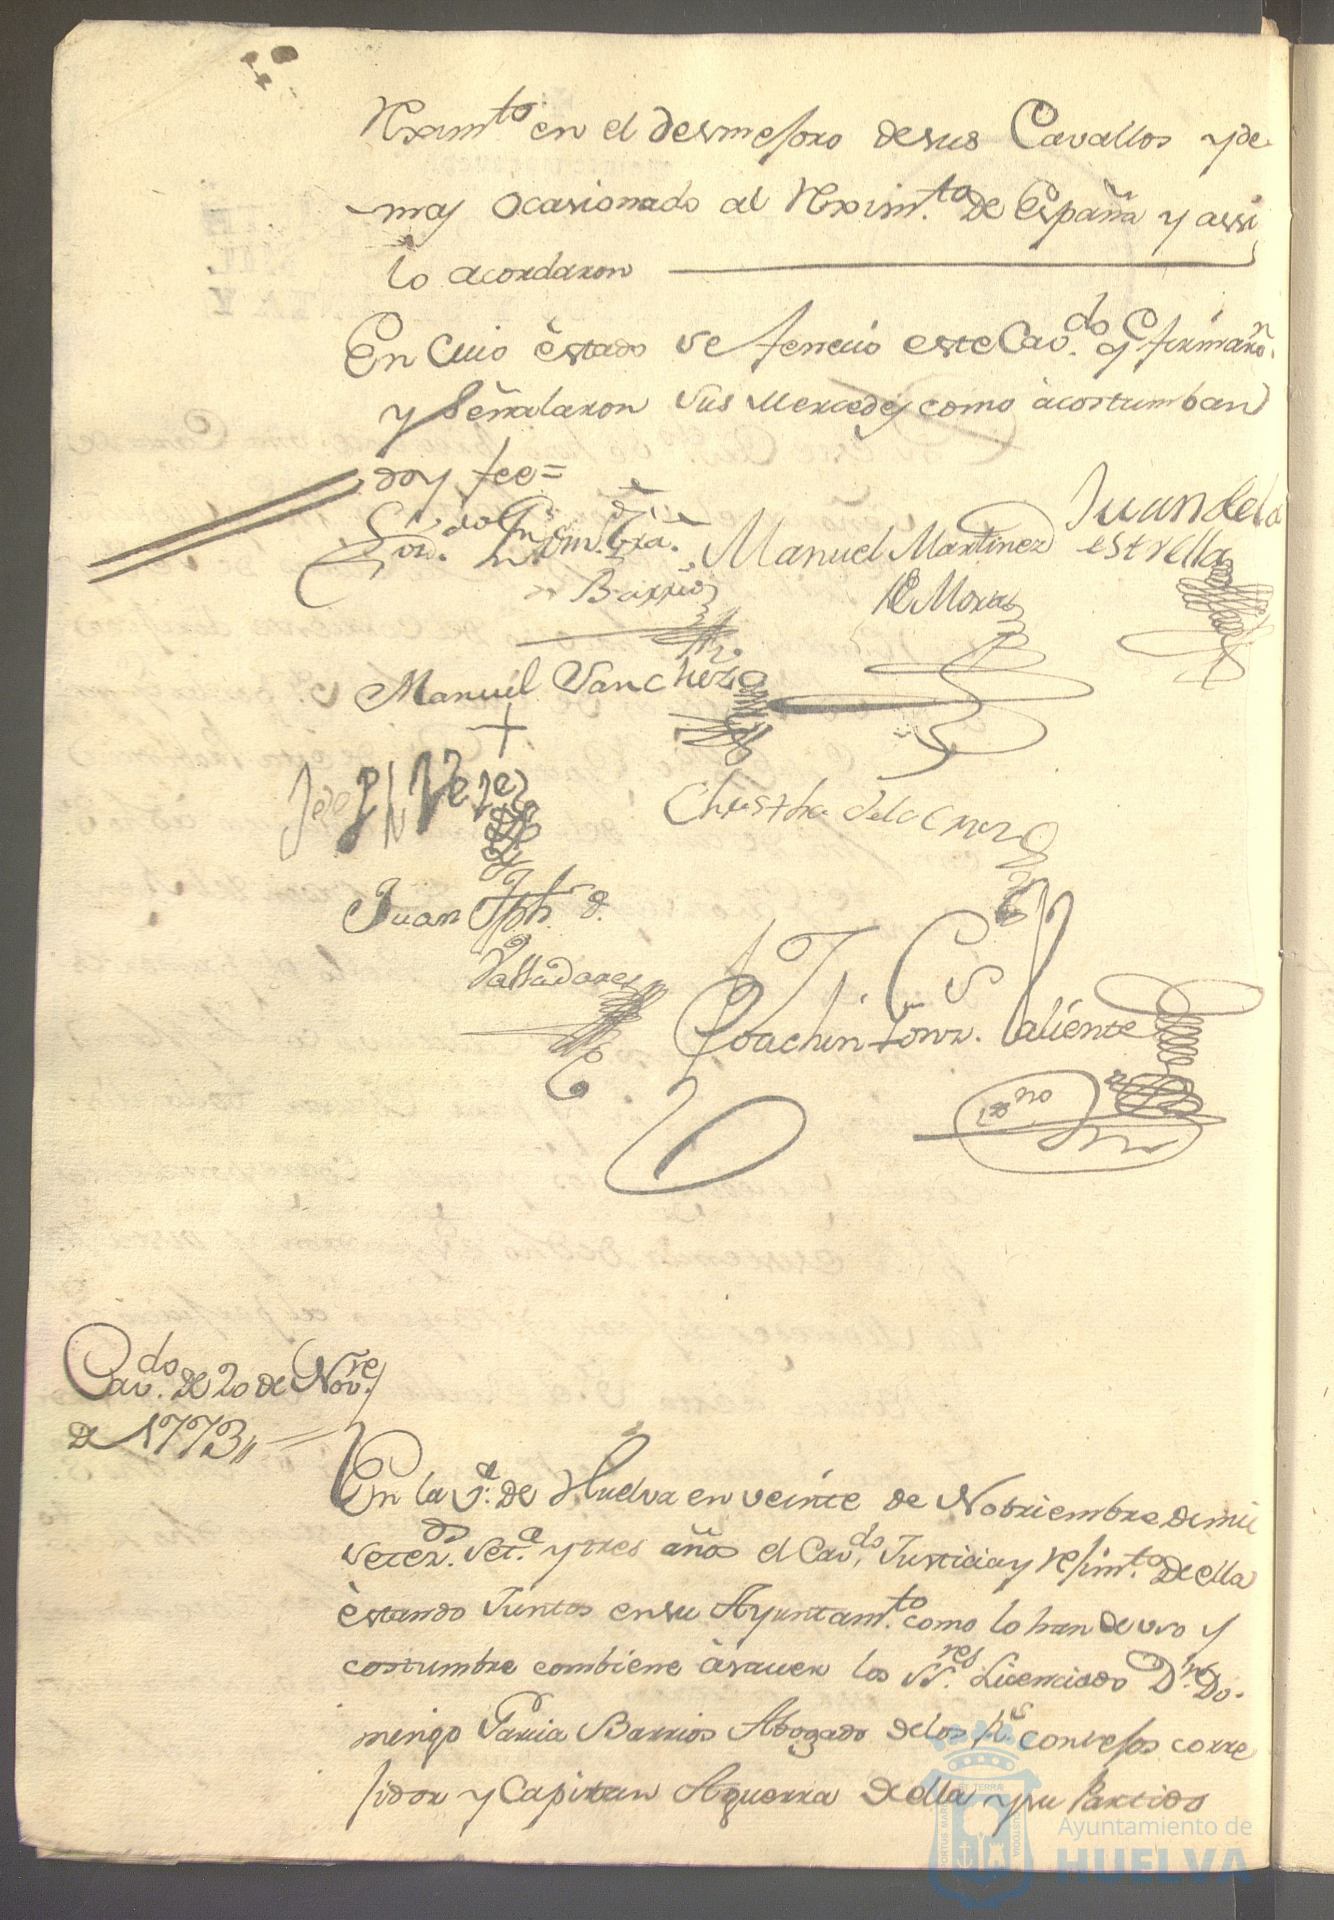 Reximto en el desmesoro de sus Cavallos y de
mas ocasionado al Reximto. de España y assi
lo acordaron
En cuio èstado se feneció este Cavdo. q firmaron.
y señalaron sus Mercedes como àcostumban
doy fee=
Lizdo. Dn. Domo. Gràa.
Barrios
Manuel Martinez
de Mora
Juan dela
estrella
Manuel Sanchez
Joseph Velez
Christbal dela Cruz
Juan Jph. d.
Valladares
Joachin Gonz. Valiente
esno
Cavdo. de 20 de Novre.
de 1773
En la Va. de Huelva en veinte de Nobriembre de mil
setezs. seta. y tres años el Cavdo. Justicia y rejimto. de ella
èstando Juntos en su Ayuntamto. como lo han de uso y
costumbre combiene àsauer los SSres. Licenciado Dn. Do-
mingo Garcia Barrios Abogado de los Rs. Consejos corre
jidor y Capitan Aguerra de ella y su Partido
PORTUS MARIS
ET TERRÆ
CUSTODIA
Ayuntamiento de
HUELVA